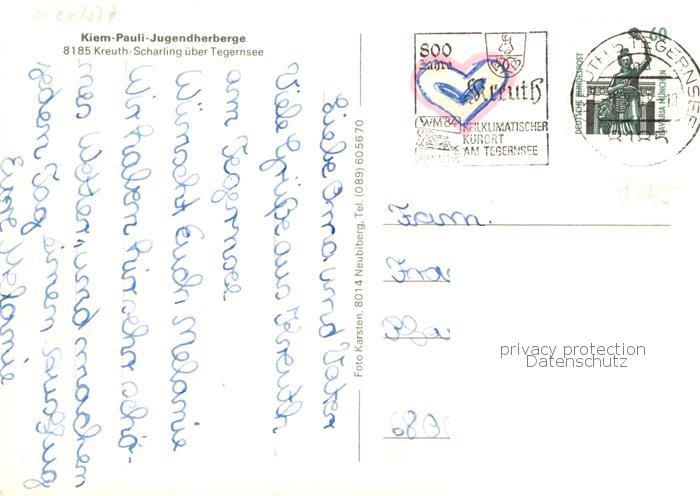 Kiem-Pauli-Jugendherberge
8185 Kreuth-Scharling über Tegernsee
Liebe Oma und
Viele Grüße aus Kreuth
am Tegernsee
Wünscht Euch Melanie
Wir haben hier sehr schö-
nes Wetter, und machen
jeden Tag einen Ausflug
Eure Melanie
Foto Karsten, 8014 Neubiberg, Tel. (089) 605670
800
Jahre
Kreuth
HEILKLIMATISCHER
KURORT
AM TEGERNSEE
60
DEUTSCHE BUNDESPOST
BAVARIA MÜNCHEN
Fam.
privacy protection
Datenschutz